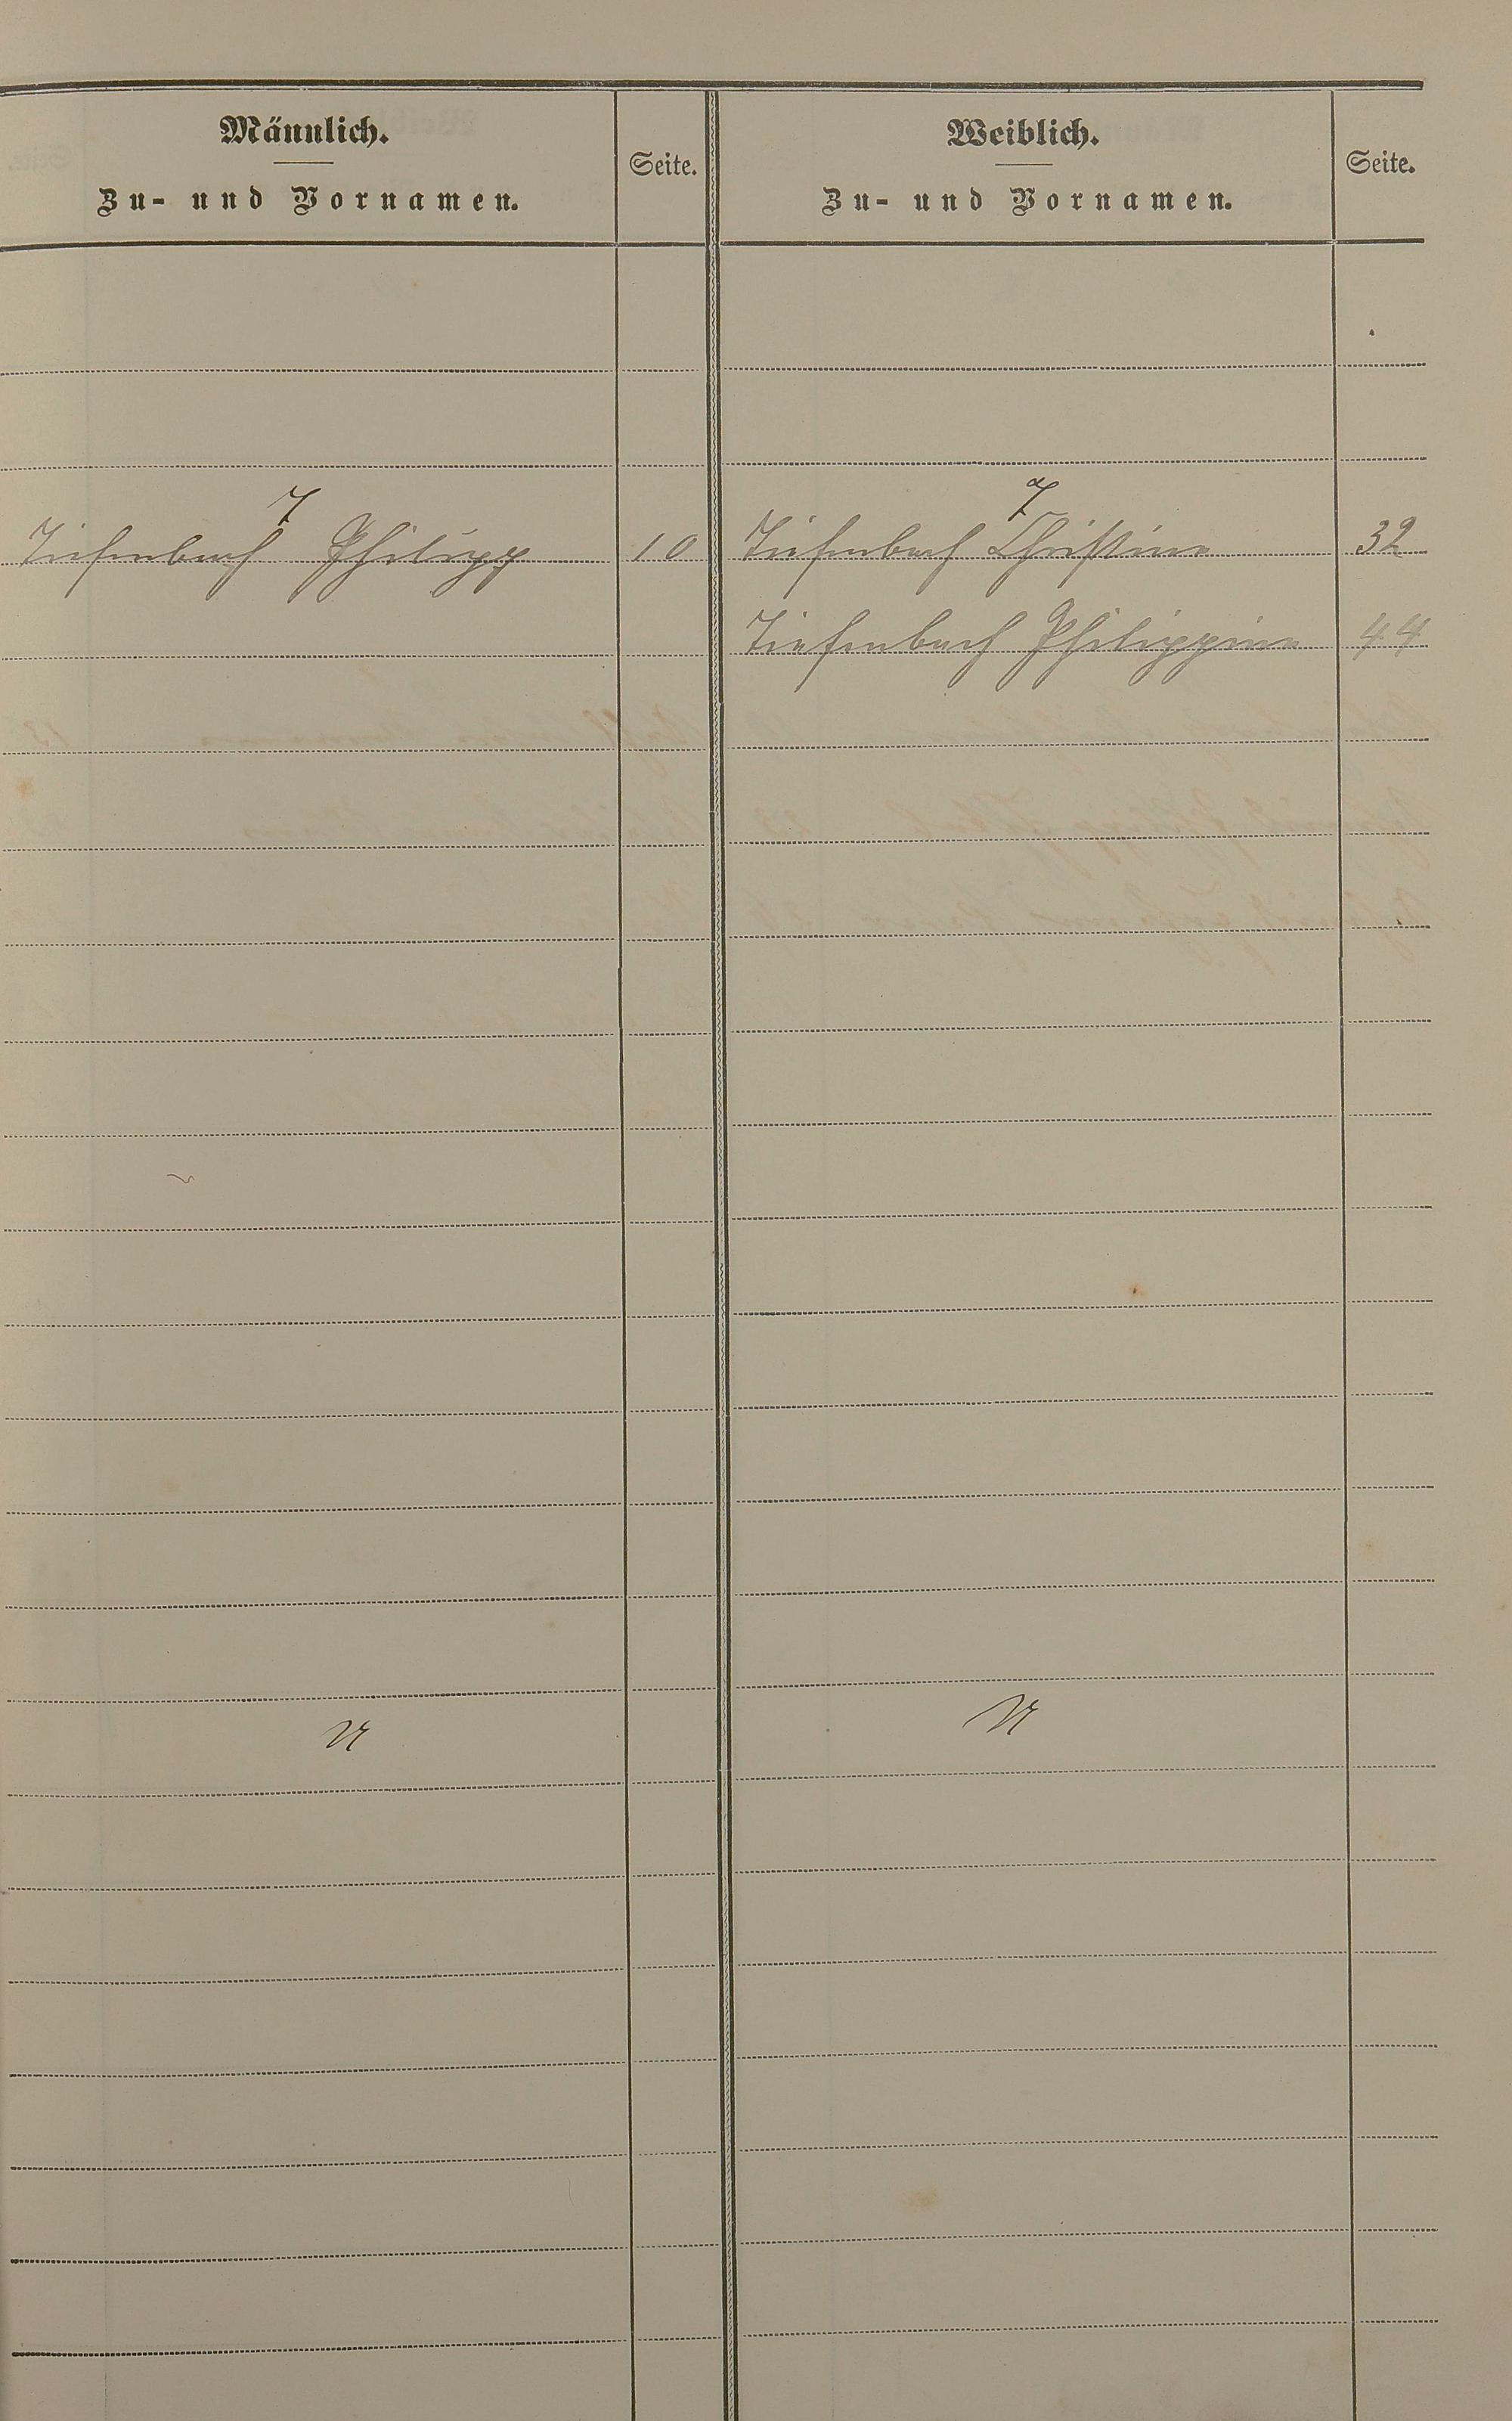 Männlich.
Zu- und Vornamen.
Seite.
Weiblich.
Zu- und Vornamen.
Seite.
T
T
Tiefenbach Philipp 10
Tiefenbach Christina 32
Tiefenbach Philippina 44
U
U